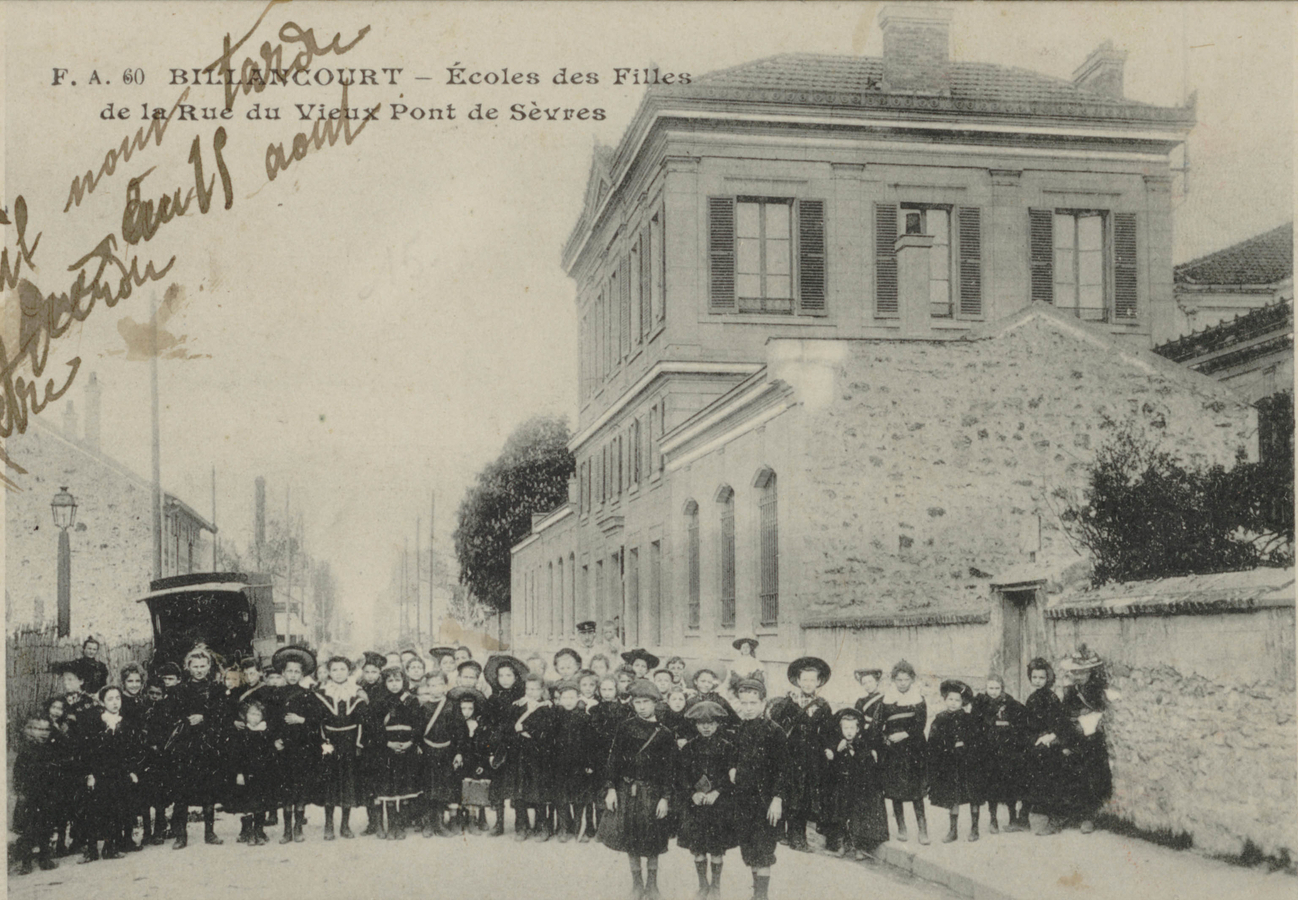 F. A. 60 BILLANCOURT – Écoles des Filles
de la Rue du Vieux Pont de Sèvres
tarde
nous
15 août